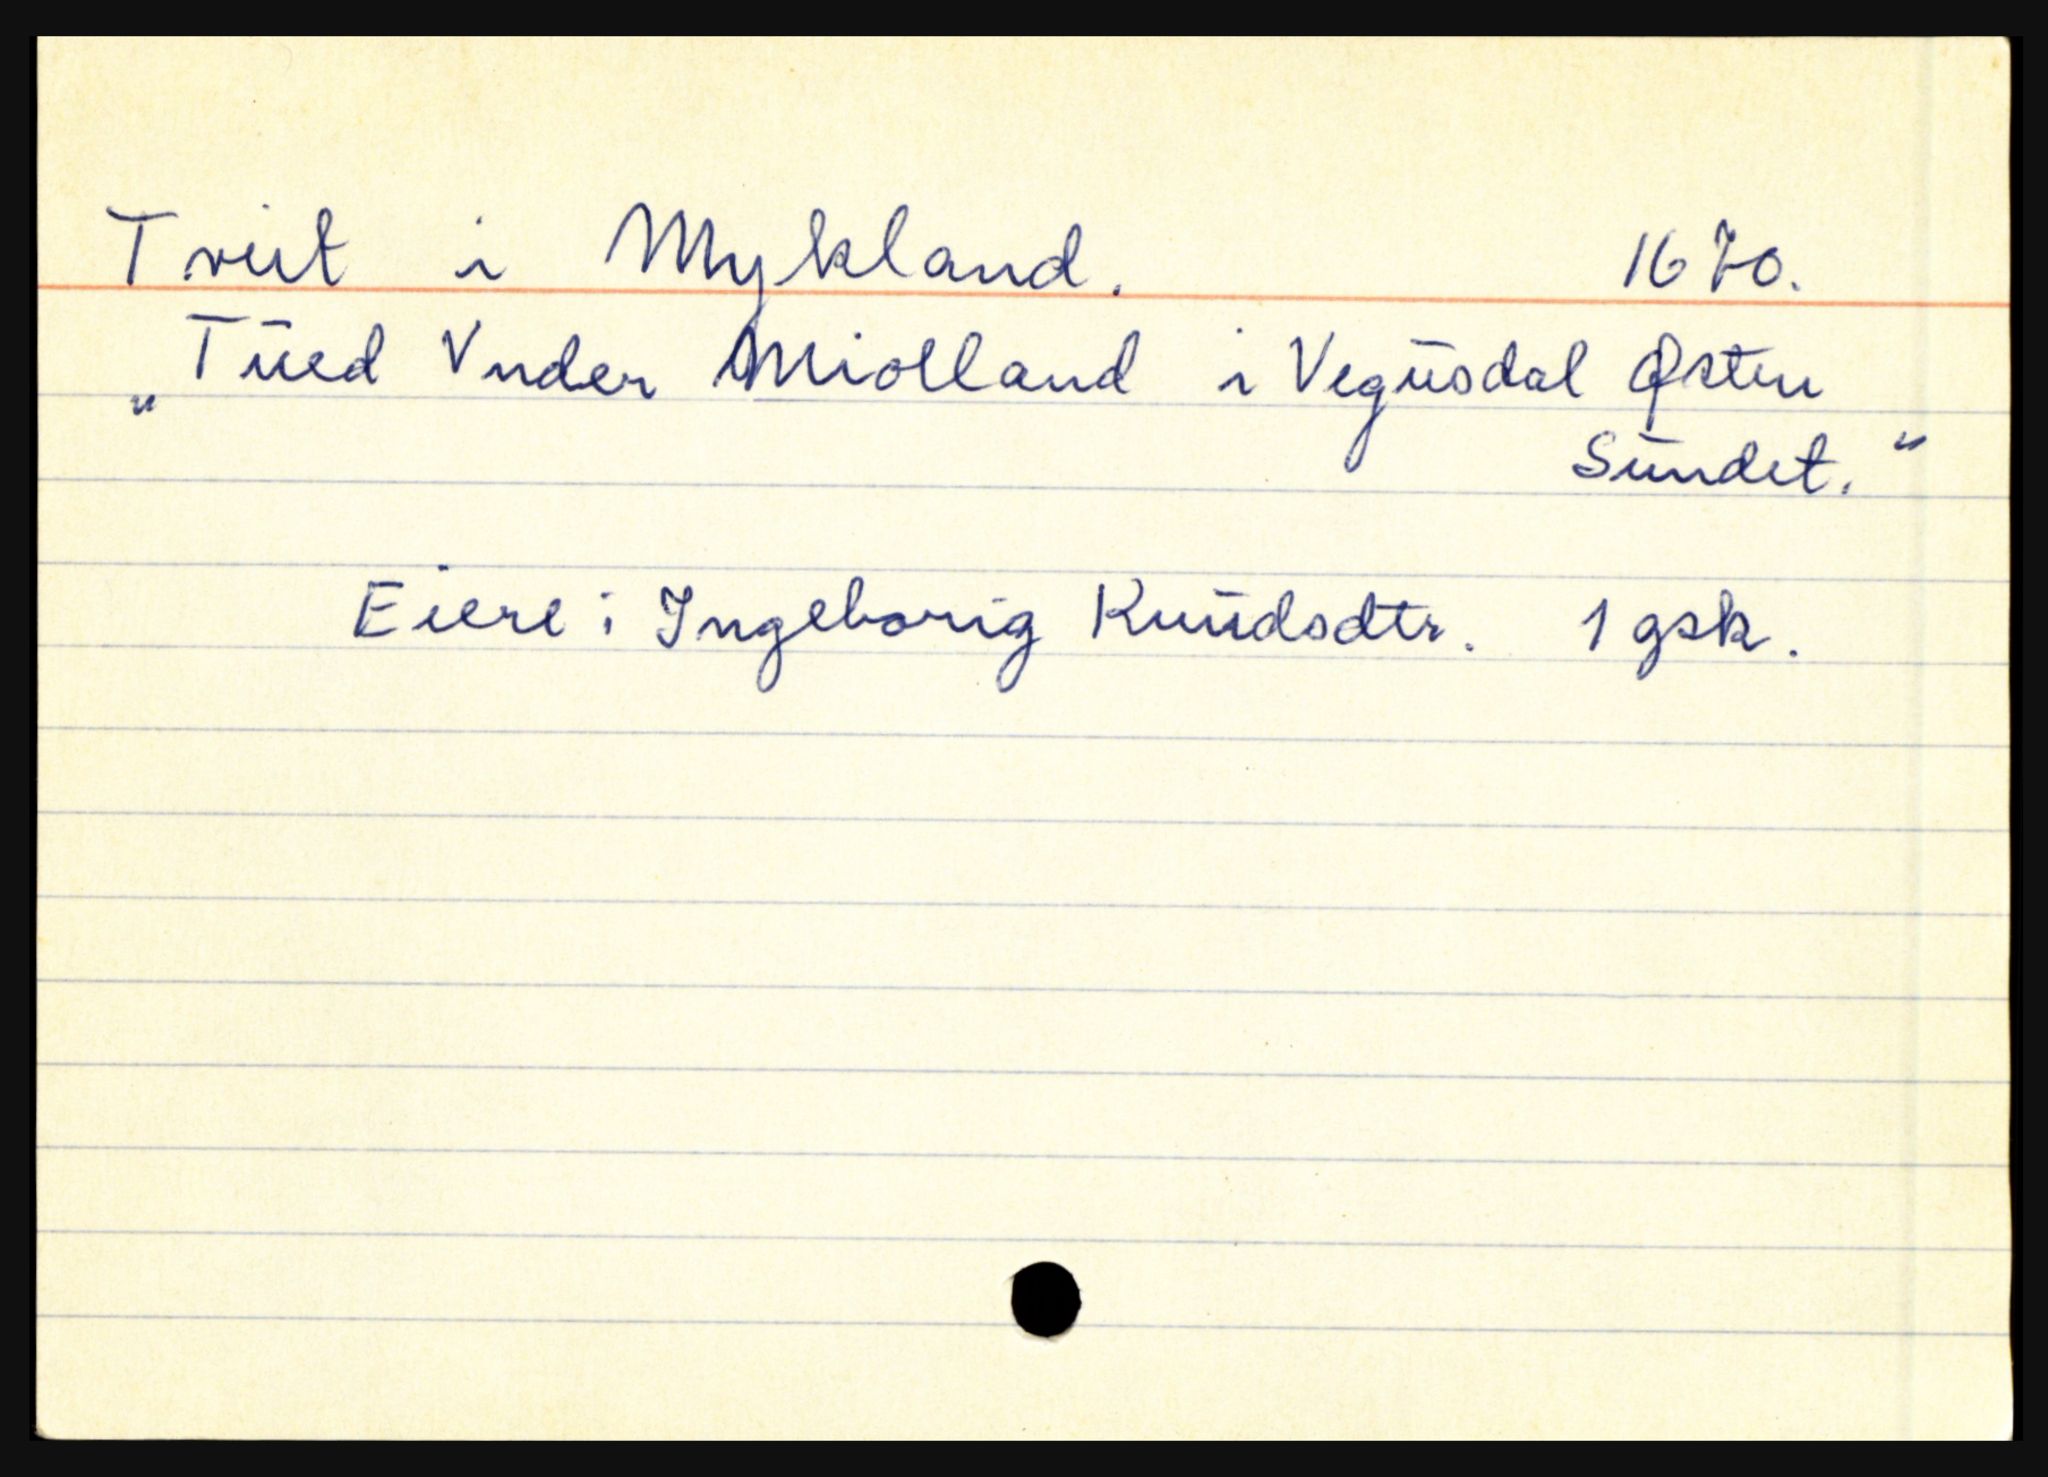 Tveit i Mykland. 1670.
„Tūed Vnder Miolland i Vegūsdal Østen
Sūndet.“
Eiere: Ingeborig Knūdsdtr. 1 gsk.